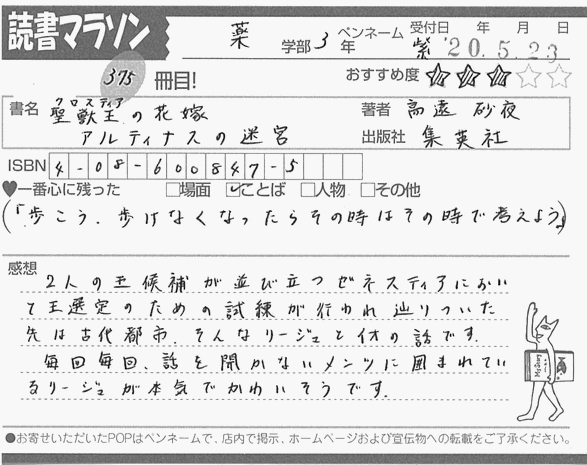 読書マラソン
薬 学部 3 年 ペンネーム 紫 受付日 年 月 日 '20.5.23
375 冊目! おすすめ度 ★★★☆☆
クロスティア
書名 聖獣王の花嫁 著者 高遠 砂夜
アルティナスの迷宮 出版社 集英社
ISBN 4-08-600847-5
♥一番心に残った □場面 ☑ことば □人物 □その他
(「歩こう。歩けなくなったらその時はその時で考えよう」)
感想
2人の王候補が並び立つゼネスティアにおい
て王選定のための試練が行われ辿りついた
先は古代都市。そんなリージュとイオの話です。
毎回毎回、話を聞かないメンツに囲まれてい
るリージュが本気でかわいそうです。
●お寄せいただいたPOPはペンネームで、店内で掲示、ホームページおよび宣伝物への転載をご了承ください。